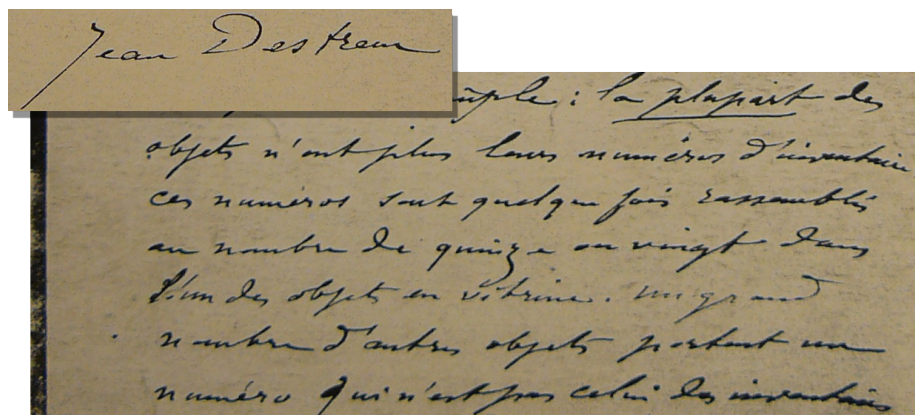 Jean Destrem
la plupart des
objets n'ont plus leurs numéros d'inventaire
ces numéros sont quelque fois rassemblés
au nombre de quinze ou vingt dans
l'un des objets en vitrine. un grand
nombre d'autres objets portent un
numéro qui n'est pas celui des inventaires